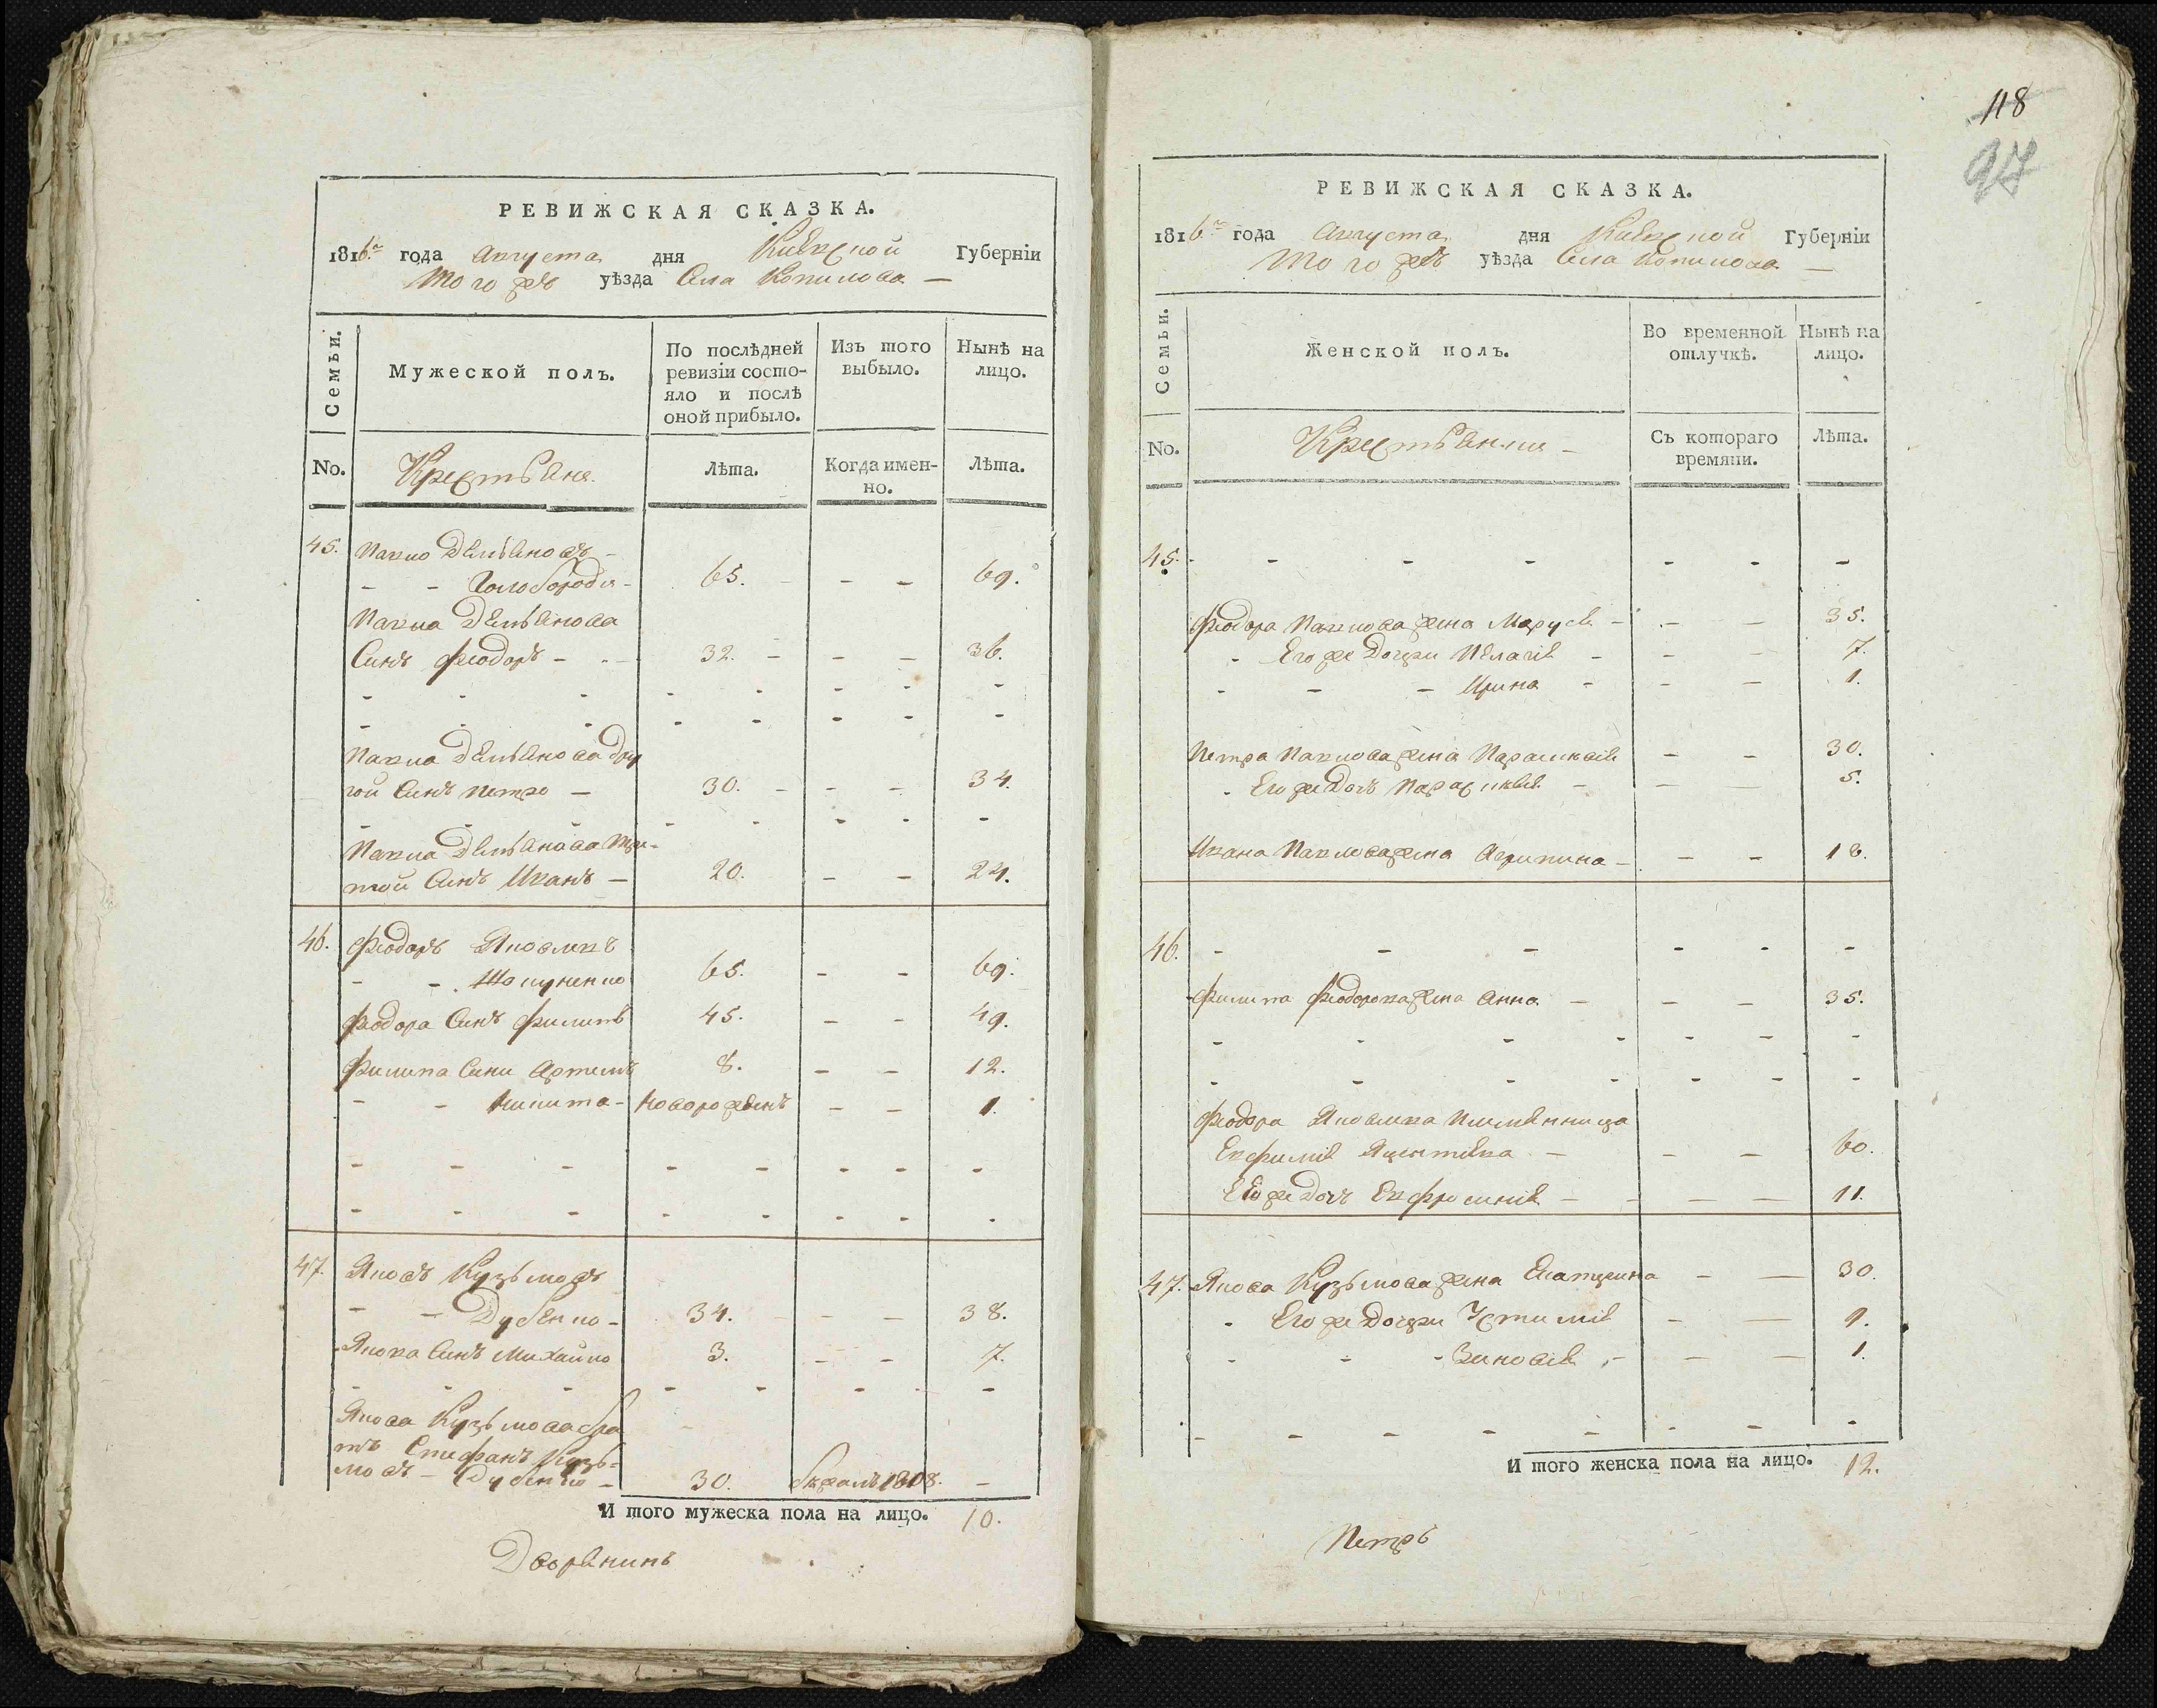 РЕВИЖСКАЯ СКАЗКА.
1816го года Августа дня Киевской Губерніи
того жъ уѣзда Села Копилова
Семьи.
Мужеской полъ.
По послѣдней ревизіи состо-
яло и послѣ
оной прибыло.
Изъ того
выбыло.
Нынѣ на
лицо.
No. Крестьяне. Лѣта. Когда имен-
но. Лѣта.
45. Павло Демьяновъ -
- - Голобородя - 65. - - 69.
Павла Демьянова
Синъ Феодоръ - 32. - - 36.
Павла Демьянова дру
гой Синъ Петро - 30. - - 34.
Павла Демьянова тре-
той Синъ Иванъ - 20. - - 24.
46. Феодоръ Яковлевъ
- - 65. - - 69.
Феодора Синъ Филипъ 45. - - 49.
Филипа Сини Артемъ 8. - - 12.
- - Никита - Новорожденъ - - 1.
47. Яковъ Кузьмовъ
- - Дубенко - 34. - - 38.
Якова Синъ Михайло 3. - - 7.
Якова Кузьмова бра
тъ Стефанъ Кузь-
мовъ - Дубенко - 30. 1808. -
И того мужеска пола на лицо. 10.
Дворянинъ
118
97
РЕВИЖСКАЯ СКАЗКА.
1816го года Августа дня Киевской Губерніи
того жъ уѣзда Села Копилова -
Семьи.
Женской полъ.
Во временной
отлучкѣ.
Нынѣ на
лицо.
No. Крестьянки - Съ котораго
времяни. Лѣта.
45. - - - - - -
Феодора Павлова жена Маруся - - - 35.
- Его же Дочери Пелагія - - - 7.
- - - Ирина - - - 1.
Петра Павлова жена Парасковія - - 30.
- Его же Дочъ Параскевія - - - 5.
Ивана Павлова жена Агрипина - - - 18.
46. - - - - - -
Филипа Феодорова жена Анна - - - 35.
Феодора Яковлева племѣнница
Евфимія - - - 60.
Его же Дочъ Евфросинія - - - 11.
47. Якова Кузьмова жена Екатерина - - 30.
- Его же Дочери Устимія - - 9.
- - - Зиновія - - - 1.
И того женска пола на лицо. 12.
Петръ